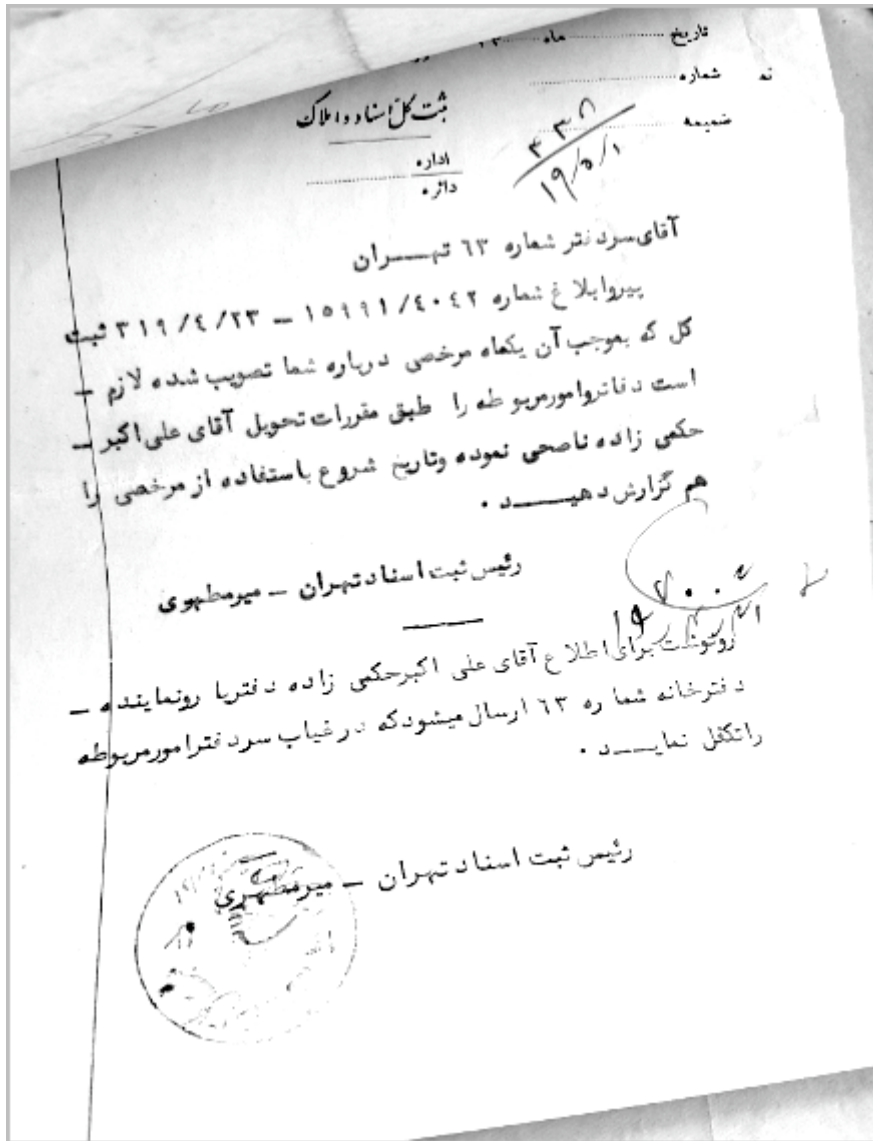 تاریخ ماه
شماره
ضمیمه
ثبت کل اسناد و املاک
۴۳۸
۱۹/۵/۱
اداره
دائره
آقای سردفتر شماره ٦٣ تهـــران
پیرو ابلاغ شماره ١٥٩٩١/٤٠٤٢ ــ ٣١٩/٤/٢٣ ثبت
کل که بموجب آن یکماه مرخصی درباره شما تصویب شده لازم ــ
است دفاتر و امور مربوطه را طبق مقررات تحویل آقای علی اکبر ــ
حکمی زاده ناصحی نموده و تاریخ شروع باستفاده از مرخصی را
هم گزارش دهیــــد ٠
رئیس ثبت اسناد تهران ــ میرمطهری
رونوشت برای اطلاع آقای علی اکبر حکمی زاده دفتریا رونماینده ــ
دفترخانه شماره ٦٣ ارسال میشود که در غیاب سردفتر امور مربوطه
را تکفل نمایـــد ٠
رئیس ثبت اسناد تهران ــ میرمطهری